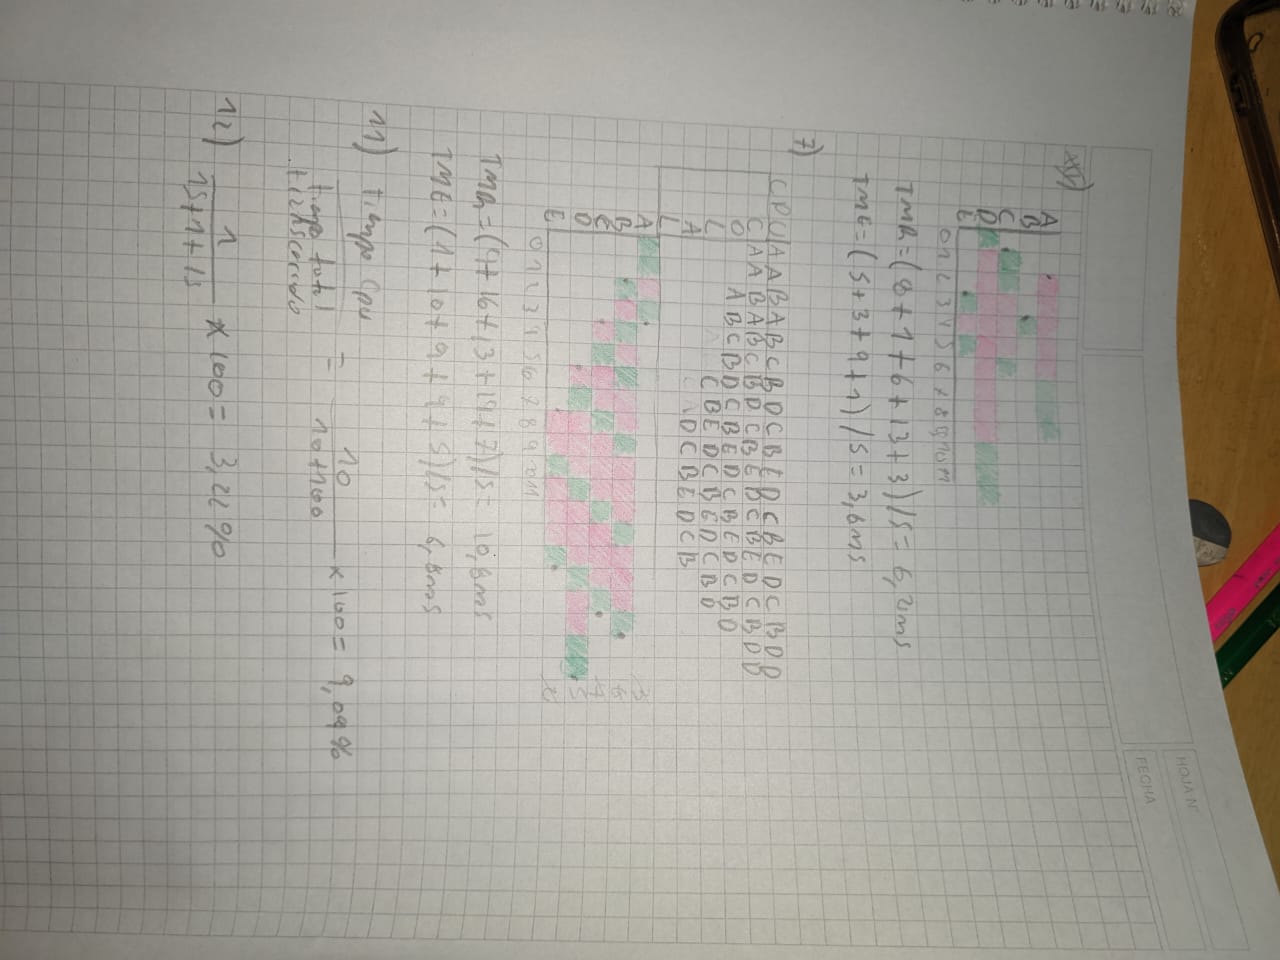 HOJA N°
FECHA
A
B
C
D
E
0 1 2 3 4 5 6 7 8 9 10 11
TMR=(8+1+6+13+3)/5= 6,2ms
TME=(5+3+9+1)/5=3,6ms
7)
CPU A A B A B C B D C B E D C B E D C B D D
C A A B A B C B D C B E D C B E D C B D D
O A B C B D C B E D C B E D C B D
L C B E D C B E D C B D
A D C B E D C B
L
A 3
B 6
C 4
D 5
E 2
0 1 2 3 4 5 6 7 8 9 10 11
TMR=(4+16+13+14+7)/5= 10,8ms
TME=(1+10+9+9+5)/5= 6,8ms
11) tiempo cpu / tiempo total transcurrido = 10 / 10+100 ×100= 9,09%
12) 1 / 15+1+15 ×100= 3,22%